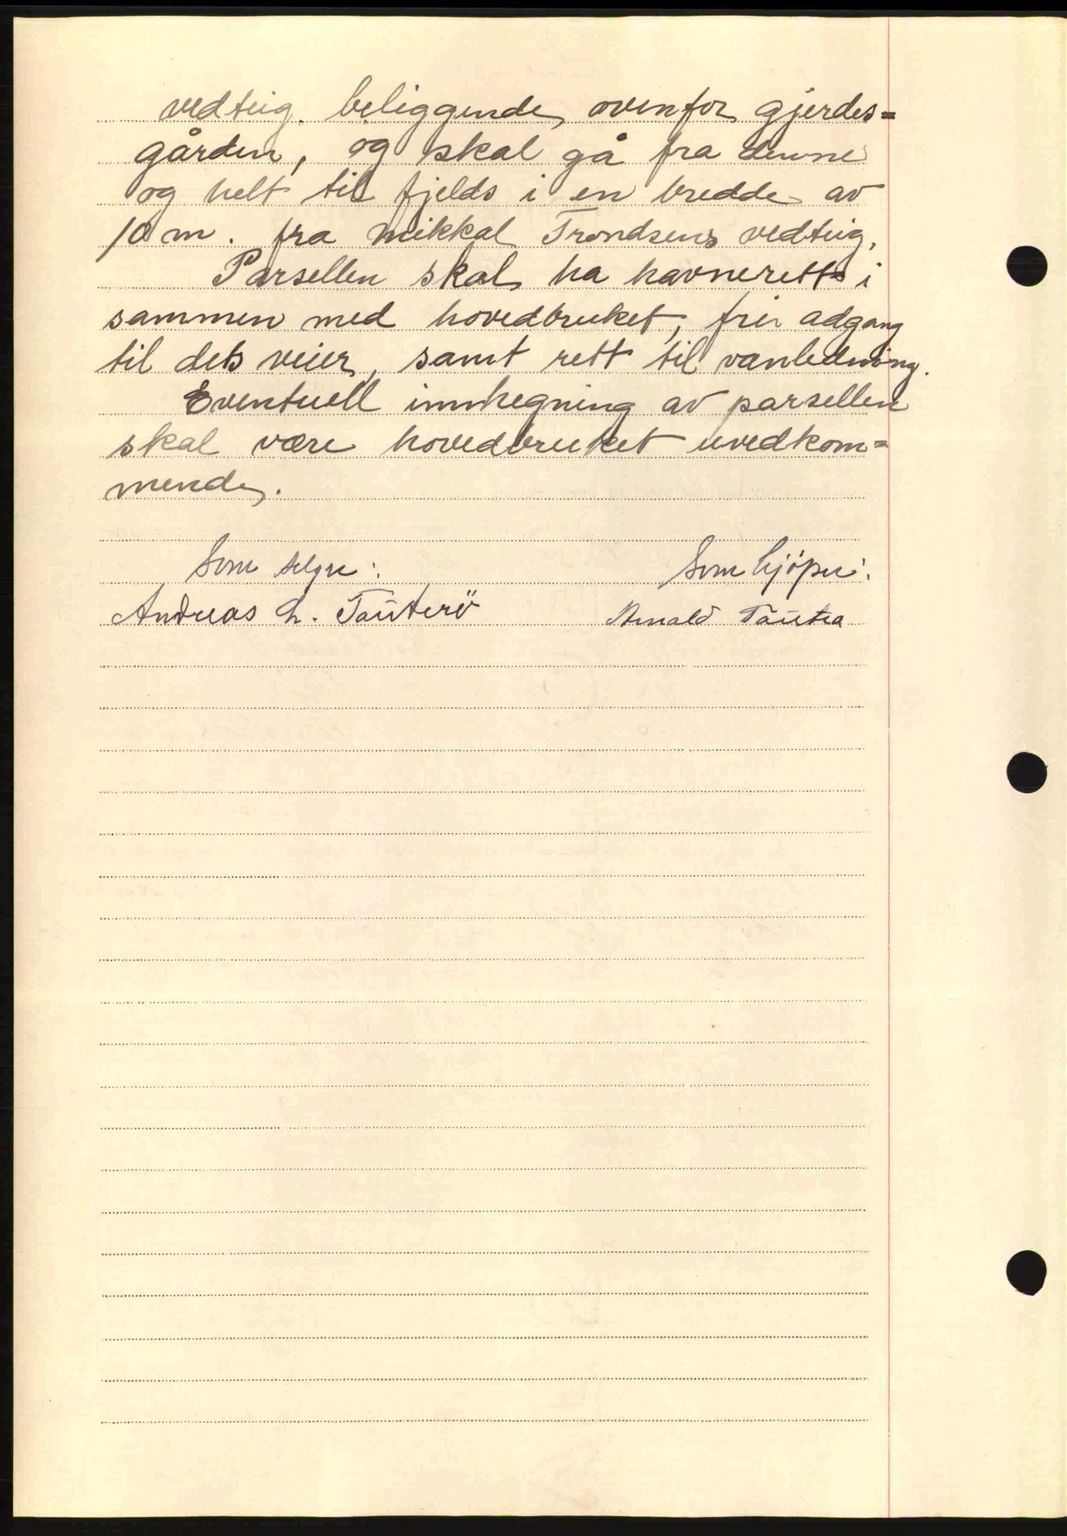 vedteig. beliggende, ovenfor gjerdes=
gården, og skal gå fra denne
og helt til fjelds i en bredde av
10 m. fra Mikkal Trondsens vedteig.
Parsellen skal ha havnerett i
sammen med hovedbruket, fri adgang
til dets veier, samt rett til vanledning.
Eventuell innhegning av parsellen
skal være hovedbruket uvedkom=
mende.
Som selger:
Som kjöper:
Andreas L. Tauterö
Arnald Tautra